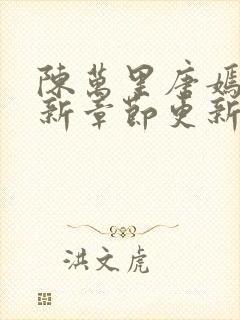 陳萬里唐嫣
新章節更新
洪文虎